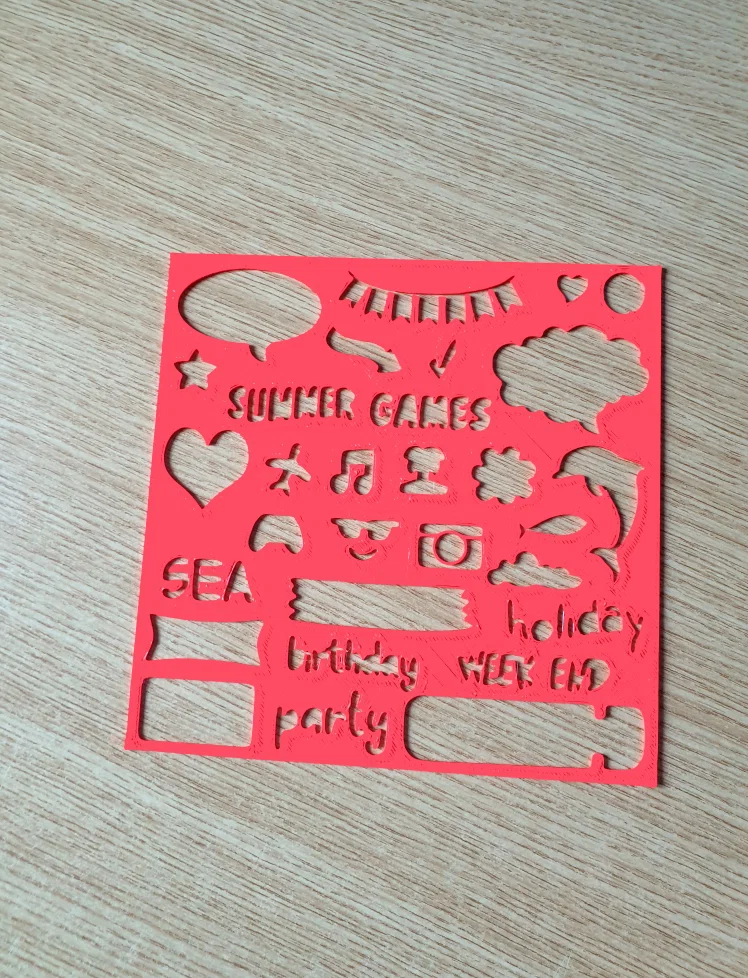 SUMMER GAMES
SEA
holiday
birthday
WEEK END
party